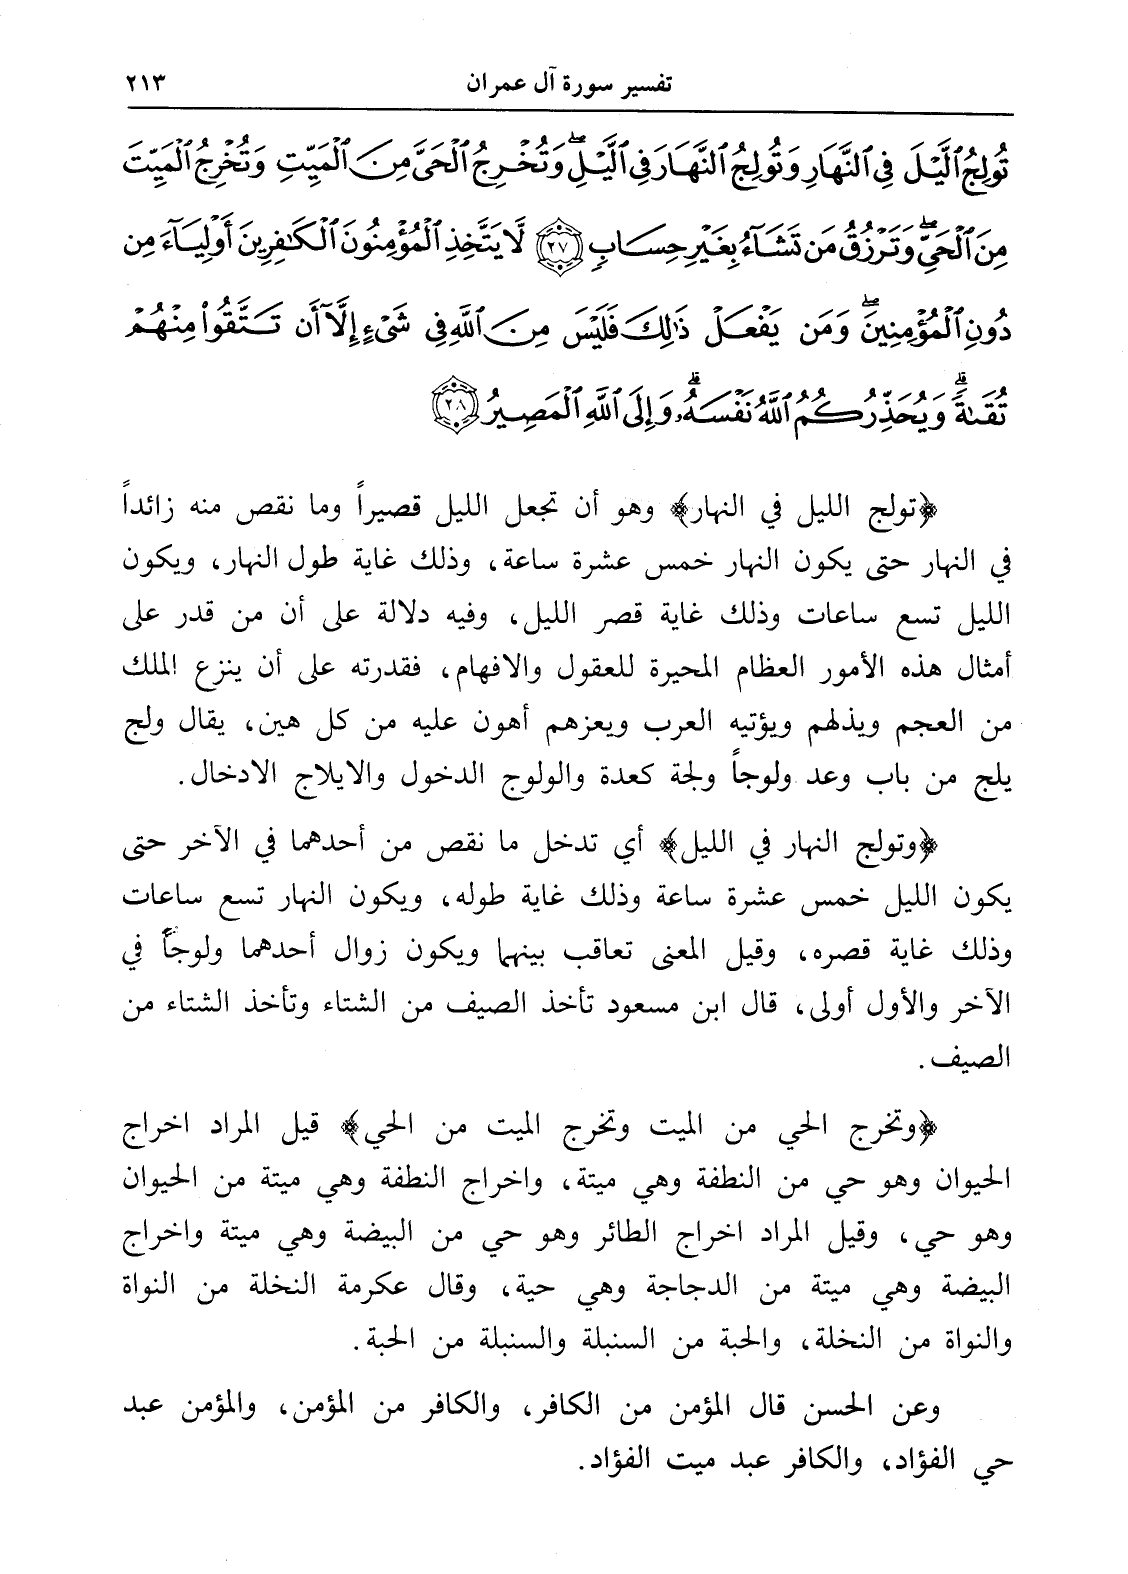 تفسير سورة آل عمران ٢١٣
تُولِجُ ٱلَّيْلَ فِي ٱلنَّهَارِ وَتُولِجُ ٱلنَّهَارَ فِي ٱلَّيْلِۖ وَتُخْرِجُ ٱلْحَىَّ مِنَ ٱلْمَيِّتِ وَتُخْرِجُ ٱلْمَيِّتَ
مِنَ ٱلْحَيِّۖ وَتَرْزُقُ مَن تَشَآءُ بِغَيْرِ حِسَابٍ ٢٧ لَّا يَتَّخِذِ ٱلْمُؤْمِنُونَ ٱلْكَٰفِرِينَ أَوْلِيَآءَ مِن
دُونِ ٱلْمُؤْمِنِينَۖ وَمَن يَفْعَلْ ذَٰلِكَ فَلَيْسَ مِنَ ٱللَّهِ فِي شَىْءٍ إِلَّآ أَن تَتَّقُوا۟ مِنْهُمْ
تُقَىٰةًۗ وَيُحَذِّرُكُمُ ٱللَّهُ نَفْسَهُۥۗ وَإِلَى ٱللَّهِ ٱلْمَصِيرُ ٢٨
﴿تولج الليل في النهار﴾ وهو أن تجعل الليل قصيراً وما نقص منه زائداً
في النهار حتى يكون النهار خمس عشرة ساعة، وذلك غاية طول النهار، ويكون
الليل تسع ساعات وذلك غاية قصر الليل، وفيه دلالة على أن من قدر على
أمثال هذه الأمور العظام المحيرة للعقول والافهام، فقدرته على أن ينزع الملك
من العجم ويذلهم ويؤتيه العرب ويعزهم أهون عليه من كل هين، يقال ولج
يلج من باب وعد ولوجاً ولجة كعدة والولوج الدخول والايلاج الادخال.
﴿وتولج النهار في الليل﴾ أي تدخل ما نقص من أحدهما في الآخر حتى
يكون الليل خمس عشرة ساعة وذلك غاية طوله، ويكون النهار تسع ساعات
وذلك غاية قصره، وقيل المعنى تعاقب بينهما ويكون زوال أحدهما ولوجاً في
الآخر والأول أولى، قال ابن مسعود تأخذ الصيف من الشتاء وتأخذ الشتاء من
الصيف.
﴿وتخرج الحي من الميت وتخرج الميت من الحي﴾ قيل المراد اخراج
الحيوان وهو حي من النطفة وهي ميتة، واخراج النطفة وهي ميتة من الحيوان
وهو حي، وقيل المراد اخراج الطائر وهو حي من البيضة وهي ميتة واخراج
البيضة وهي ميتة من الدجاجة وهي حية، وقال عكرمة النخلة من النواة
والنواة من النخلة، والحبة من السنبلة والسنبلة من الحبة.
وعن الحسن قال المؤمن من الكافر، والكافر من المؤمن، والمؤمن عبد
حي الفؤاد، والكافر عبد ميت الفؤاد.